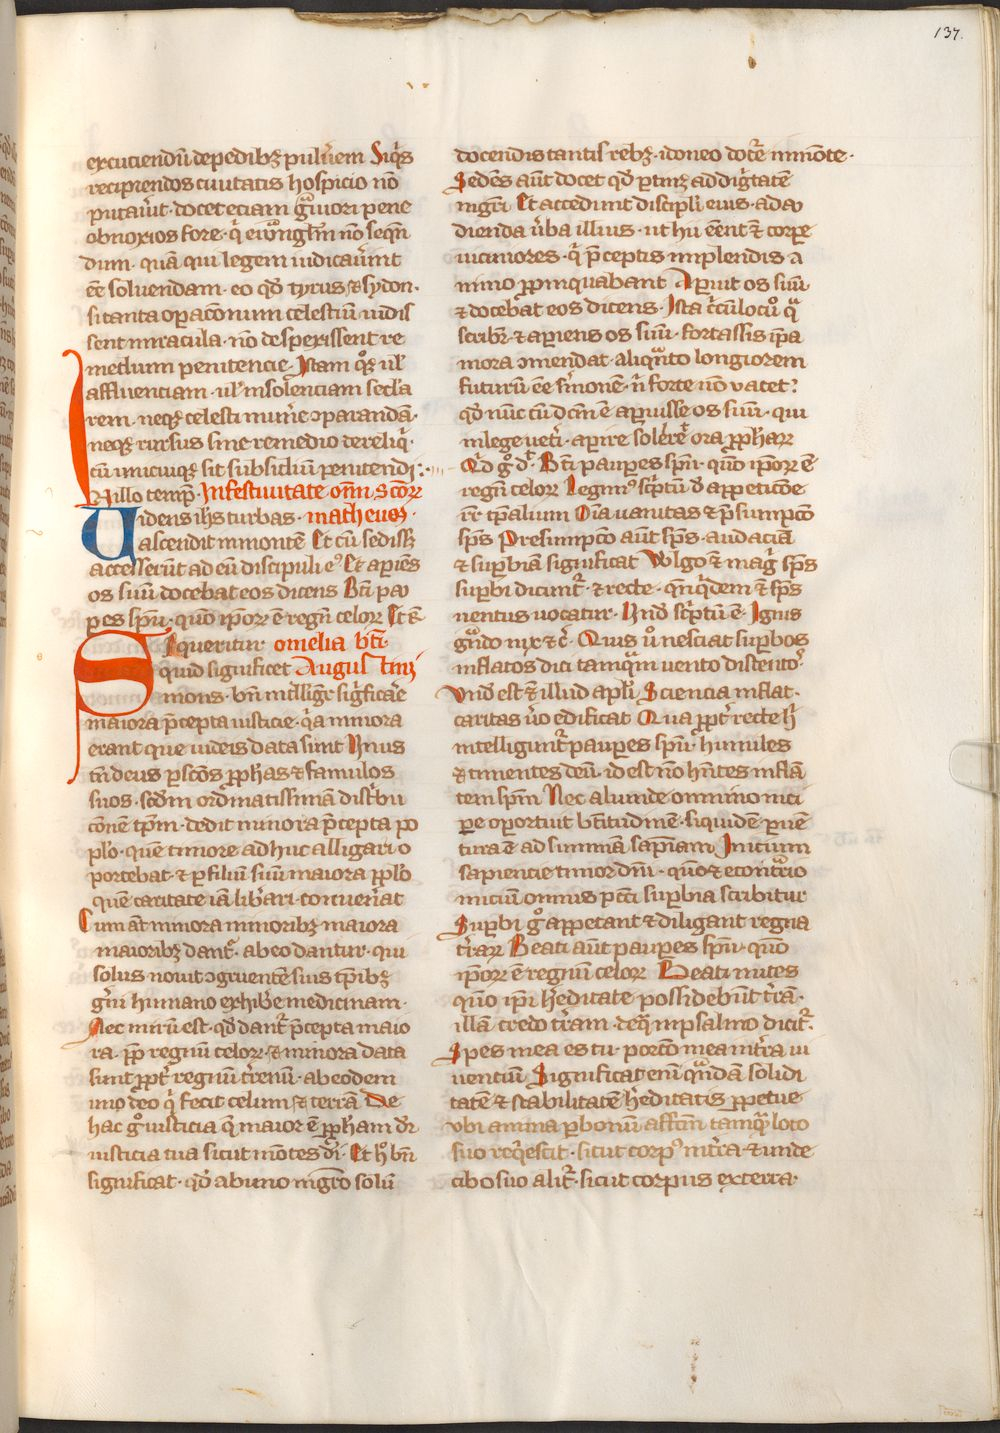 137.
excuciendū de pedibꝫ puluerem Siq̄s
recipiendos ciuitatis hospicio nō
putauit · docet eciam grauiori pene
obnoxios fore · q̄ euangliūm nō seqn̄
dum · quā qui legem iudicauerint
eē soluendam · eo qd̄ tyrus & sydon ·
si tanta opaconum celestium uidis
sent miracula · nō desperissent re
medium penitencie · Istam qͦꝫ ul̄
affluenciam · ul̄ insolenciam secl̄a
rem · neqꝫ celesti mun̄e ꝯparandā ·
neqꝫ rursus sine remedio derelīq ·
cū unicuiqꝫ sit subsidiū penitendi :·
In illo temp̄ · In festiuitate om̄i scōꝝ
Uidens ih̄s turbas · matheus ·
ascendit in montē Et cū sedissꝫ
accesserūt ad eū discipuli eꝰ Et apiēs
os suū docebat eos dicens Bt̄i pau
pes spū · quō ipoꝝ ē regn̄ celoꝝ Et R̄
Siqueritur omelia bt̄i
quid significet Augustini
mons · bn̄ intelligit̄ sigficāe
maiora p̄cepta iusticie · q̄a minora
erant que iudeis data sunt Unus
tn̄ deus p scōs pphas & famulos
suos · scdm ordinatissimā distbu
cōnē tpm · dedit minora p̄cepta po
plo · quē timore adhuc alligari o
portebat · & p filiū suū maora pplo
quē caritate iā libari · conuen̄at
Cum aūt minora minoribꝫ maiora
maioribꝫ dant̄ · ab eo dantur · qui
solus nouit ꝯgruentē suis tpibꝫ
gn̄i humano exhibe medicinam ·
Nec mirū est · qd̄ dant̄ p̄cepta maio
ra · pp regnū celoꝝ · & minora data
sunt ppt̄ regnū t̄renū · ab eodem
uno deo q̄ fecit celum & terrā De
hac gͦ iusticia q̄ maior ē pphām dr̄
iusticia tua sicut mōtes di Et hͦ bn̄
significat · qd̄ ab uno mgro solū
docendis tantis rebꝫ · idoneo doctē in mōte ·
Sedens aūt docet qd̄ ptinꝫ ad digtatē
mgri Et accedunt discipli eius · ad au
dienda ūba illius · ut hii ēent & corpe
uiciniores · q̄ p̄ceptis implendis a
nimo ppinquabant Aperuit os suū
& docebat eos dicens · Ista c̄cūlocuō q̄
scribit̄ & apiens os suū · fortassis ipa
mora ꝯmendat · aliquāto longiorem
futurū eē s̄monē · n̄ forte non vacet?
qd̄ nūc eū dcm̄ ē apuisse os suū · qui
in lege uet̄i · apire solēre ora pphaꝝ
Qd gͦ dt̄ · Bt̄i paupes spū · quō ipoꝝ ē
regn̄ celoꝝ Legimꝰ sc̄ptū d̄ appeticōe
rē tpalium Om̄ia uanitas & p̄sumpcō
sps Presumpcō aūt sps · audaciā
& supbiā significat Vulgo & maḡ sps
supbi dicunt̄ · & recte · qn̄ qdem & sps
uentus uocatur · Und̄ sc̄ptū ē · Ignis
gūdo nix &c̄ · Quis uͦ nesciat supbos
inflatos dici tamquam uento distentoꝰ
Und̄ est & illud apli Sciencia inflat ·
caritas ūo edificat Qua ppt̄ recte hͥ
intelligunt̄ paupes spū · humiles
& timentes deū · id est nō hn̄tes inflā
tem spm̄ Nec aliunde omnino inci
pe oportuit bt̄itudinē · siquidē puē
tura ē ad summā sapnīam Inicium
sapiencie timor dn̄i · quō & econtrio
iniciū omnis pcc̄i supbia scribitur
Supbi gͦ appetant & diligant regna
t̄raꝝ Beati aūt paupes spū · quō
ipoꝝ ē regnū celoꝝ Beati mites
quō ipi h̄editate possidebūt t̄rā ·
illā credo t̄ram · de q̄ in psalmo dicit̄ ·
Spes mea es tu · porcō mea in t̄ra ui
uentiū Significat enī quādā solidi
tatē & stabilitatē h̄editatis ppetue
vbi anima p bonū affctm̄ tamquā loco
suo req̄escit · sicut corpꝰ in t̄ra · & unde
cibo suo alit̄ · sicut corpus ex terra ·